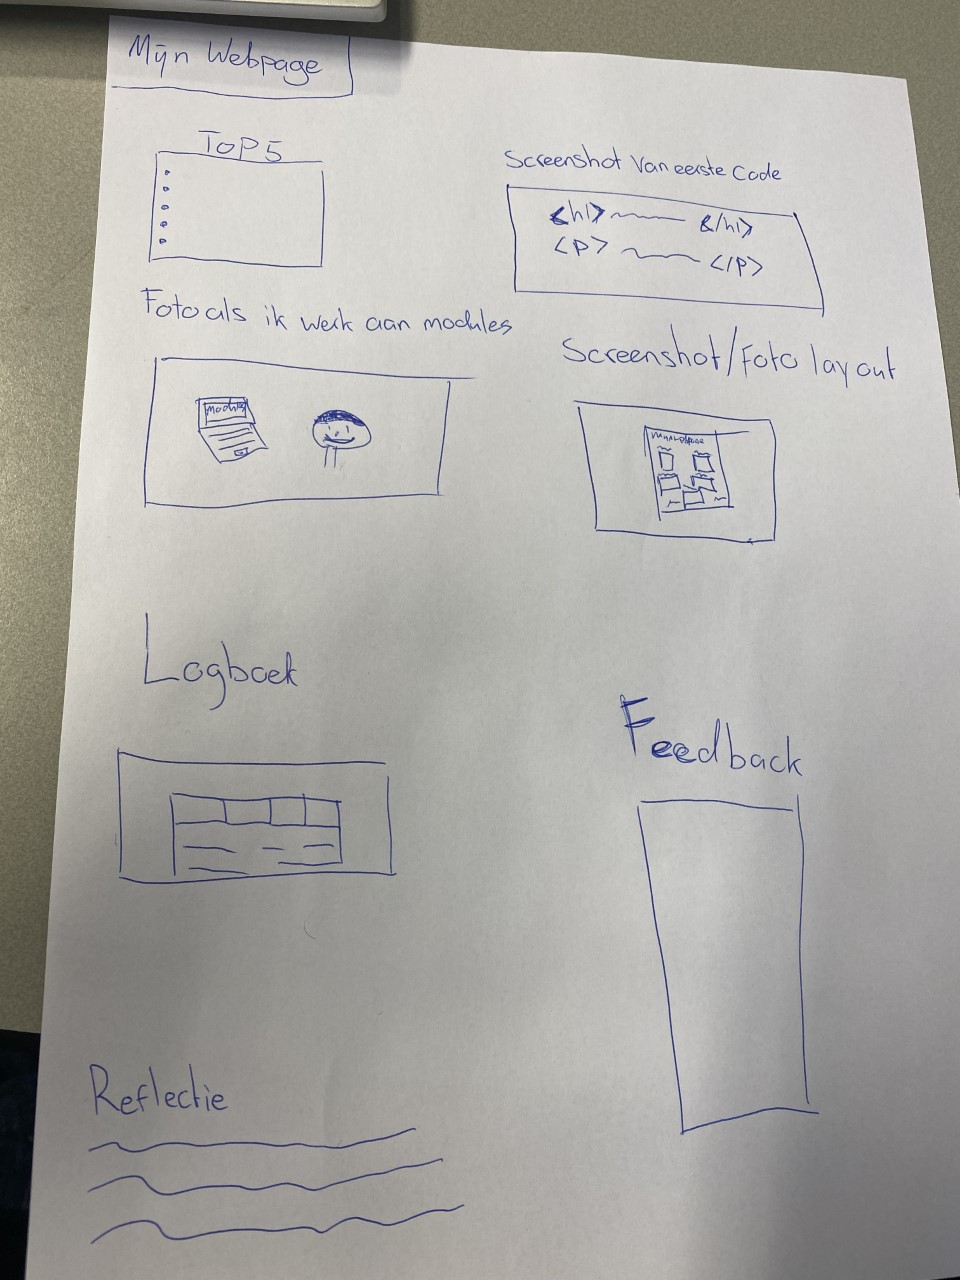 Mijn Webpage
TOP 5
Screenshot Van eerste code
<h1> </h1>
<p> </p>
Foto als ik werk aan modules
Screenshot/Foto layout
Logboek
Feedback
Reflectie